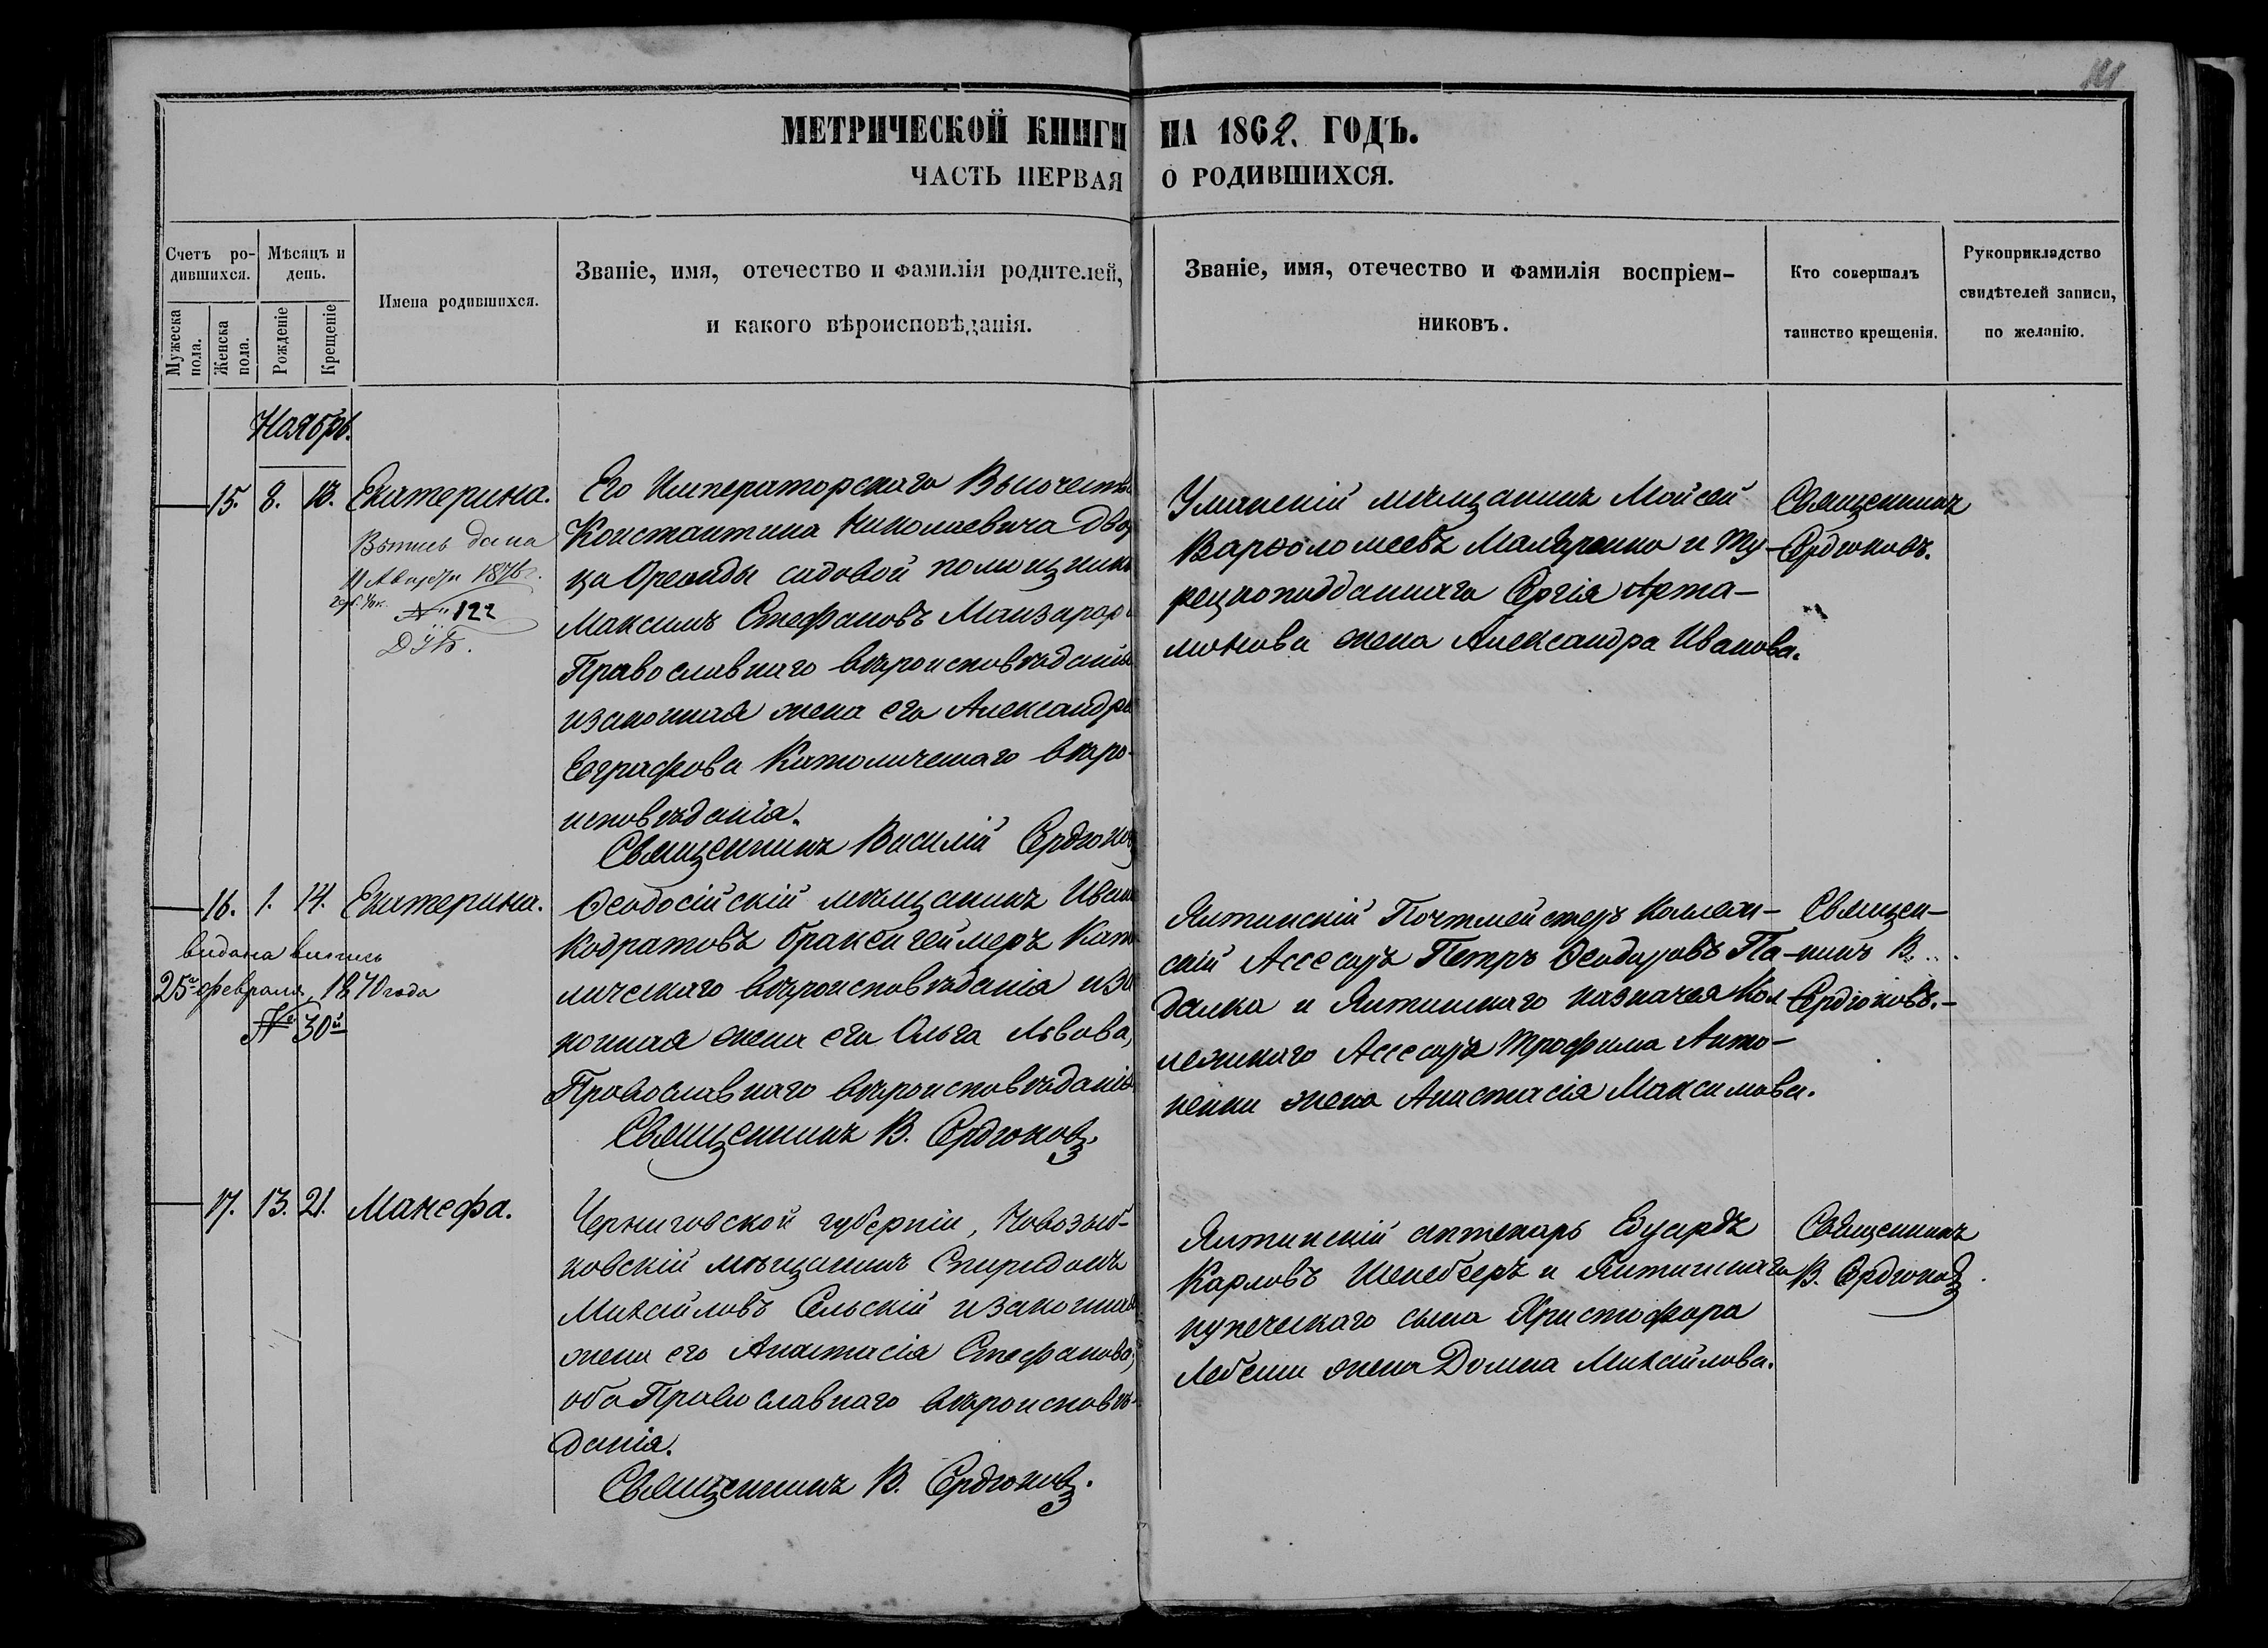 МЕТРИЧЕСКОЙ КНИГИ НА 1862. ГОДЪ.
ЧАСТЬ ПЕРВАЯ О РОДИВШИХСЯ.
Счетъ ро-
дившихся.
Мужеска пола.
Женска пола.
Мѣсяцъ и
день.
Рожденіе
Крещеніе
Имена родившихся.
Званіе, имя, отечество и фамилія родителей,
и какого вѣроисповѣданія.
Званіе, имя, отечество и фамилія воспріем-
никовъ.
Кто совершалъ
таинство крещенія.
Рукоприкладство
свидѣтелей записи,
по желанію.
Ноябрь.
15. 8. 13. Екатерина.
дана
1876 г.
№ 122
Его Императорскаго Высочества
Константина Николаевича Двор
ца Ореанды садовой помощникъ
Максимъ Стефановъ
Православнаго вѣроисповѣданія
и законная жена его Александра
Евграфова Католическаго вѣро-
исповѣданія.
Священникъ Василій Сердюковъ
Уманскій мѣщанинъ Мойсей
Варѳоломеевъ Маляренко и Ту-
рецкоподданнаго Сергія Арта-
монова жена Александра Иванова.
Священникъ
Сердюковъ.
16. 1. 14. Екатерина.
видана випись
25го февраля, 1870 года
№ 30й
Ѳеодосійскій мѣщанинъ Иванъ
Кодратовъ Като
лическаго вѣроисповѣданія и за
конная жена его Ольга Львова,
Православнаго вѣроисповѣданія
Священникъ В. Сердюковъ.
Ялтинскій Почтмейстеръ Коллеж-
скій Ассесоръ Петръ Ѳеодоровъ Па-
далка и Ялтинскаго казначея Кол
лежскаго Ассесора Трофима Анто-
ненки жена Анастасія Максимова.
Священ-
никъ В.
Сердюковъ.-
17. 13. 21. Манефа.
Черниговской губерніи, Новозыб-
ковскій мѣщанинъ Спиридонъ
Михайловъ Сельскій и законная
жена его Анастасія Стефанова,
оба Православнаго вѣроисповѣ-
данія.
Священникъ В. Сердюковъ.
Ялтинскій аптекарь Едуардъ
Карловъ и Ялтинскаго
купеческаго сына Христофора
жена Домна Михайлова.
Священникъ
В. Сердюковъ